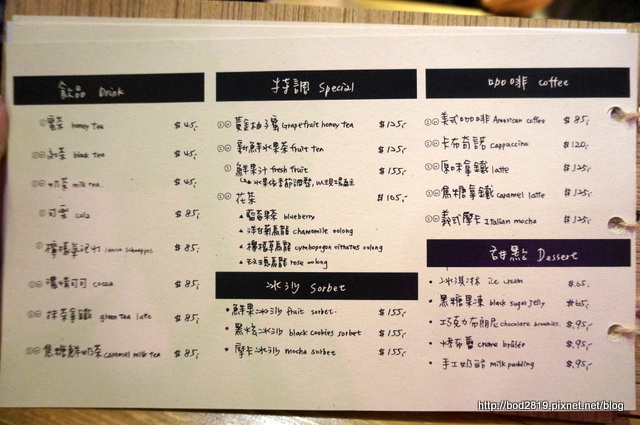 飲品 Drink
蜜茶 honey tea $45,-
紅茶 black tea $45,-
奶茶 milk tea $45,-
可樂 cola $85,-
檸檬氣泡竹 $85,-
濃情可可 cocoa $85,-
抹茶拿鐵 green tea latte $85,-
焦糖鮮奶茶 caramel milk tea $85,-
特調 Special
黃金柚子蜜 Grapefruit honey tea $125,-
新鮮水果茶 fruit tea $125,-
鮮果汁 fresh fruit $155,-
水果依季節調整,以現場為主
花茶 $105,-
藍莓果茶 blueberry
洋甘菊烏龍 chamomile oolong
檸檬草烏龍 cymbopogon citratus oolong
玫瑰烏龍 rose oolong
冰沙 Sorbet
鮮果冰沙 fruit sorbet $155,-
黑炫冰沙 black cookies sorbet $155,-
摩卡冰沙 mocha sorbet $155,-
咖啡 coffee
美式咖啡 American coffee $85,-
卡布奇諾 cappuccino $120,-
原味拿鐵 latte $125,-
焦糖拿鐵 caramel latte $125,-
義式摩卡 Italian mocha $125,-
甜點 Dassert
冰淇淋 ice cream $65,-
黑糖果凍 black sugar jelly $65,-
巧克力布朗尼 chocolate brownies $95,-
烤布蕾 creme brûlée $95,-
手工奶酪 milk pudding $95,-
http://bod2819.pixnet.net/blog